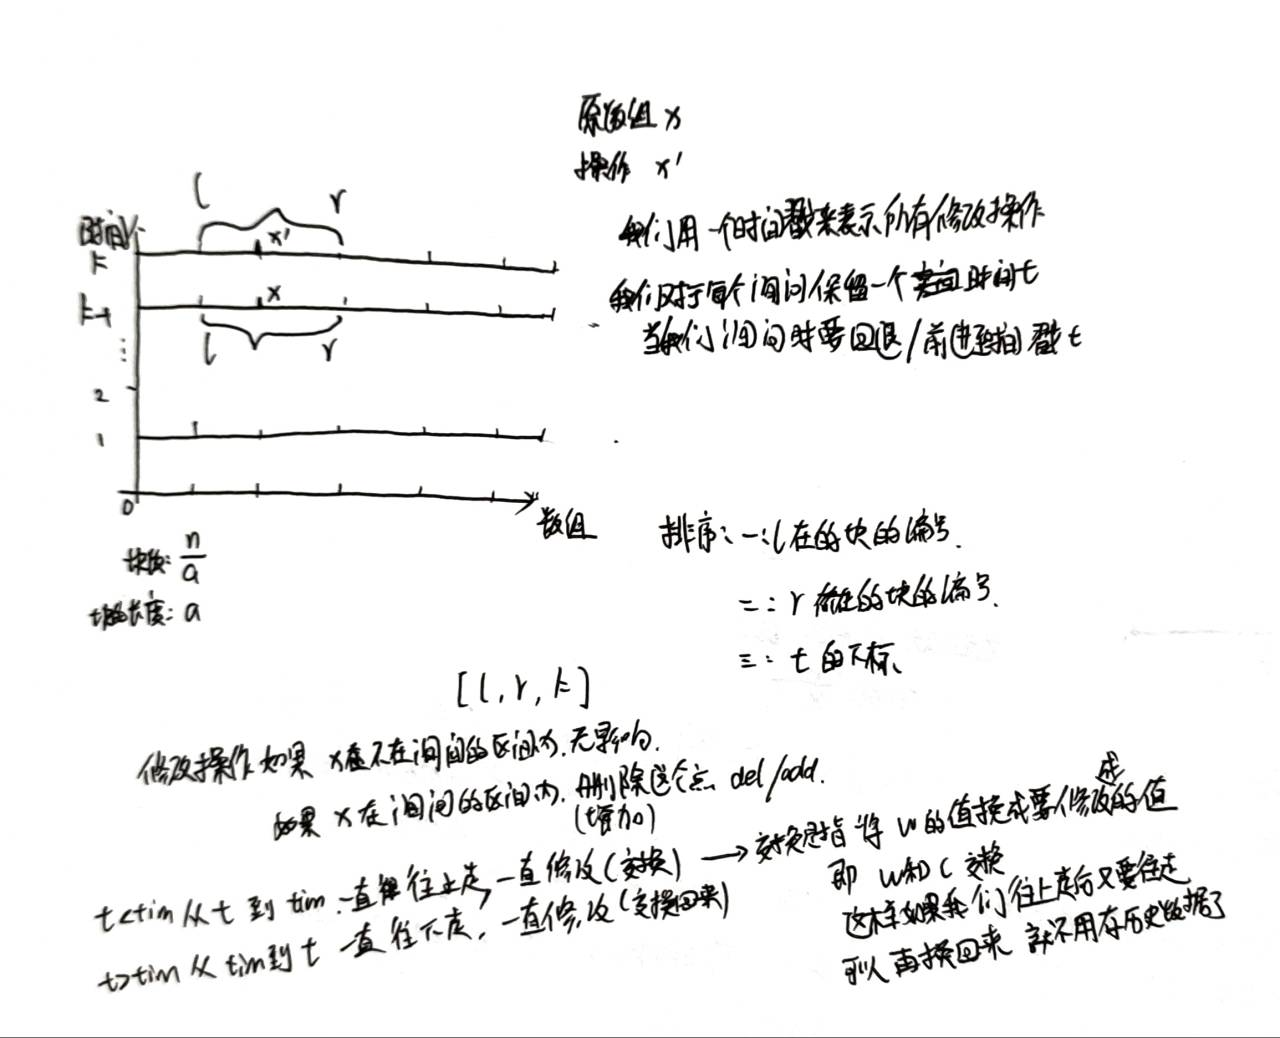 原数组 x
操作 x'
我们用一个时间戳来表示所有修改操作
我们对于每个询问保留一个时间t
当我们询问时要回退/前进到时间戳 t
l r
时间
k
x'
k-1
x
l r
⋮
2
1
0
数组
块数: n/a
块的长度: a
排序: 一: l在的块的编号.
二: r 所在的块的编号.
三: t 的下标.
[l, r, k]
修改操作如果 x不在询问的区间内.无影响.
如果 x在询问的区间内. 删除这个点 del/add.
(增加)
t<tim 从 t 到 tim 一直往上走, 一直修改(交换) → 交换是指将 w的值换成要修改成的值
即 w和 c 交换
t>tim 从 tim到 t 一直往下走, 一直修改(交换回来)
这样如果我们往上走后又要往走
可以再换回来 就不用存历史数据了